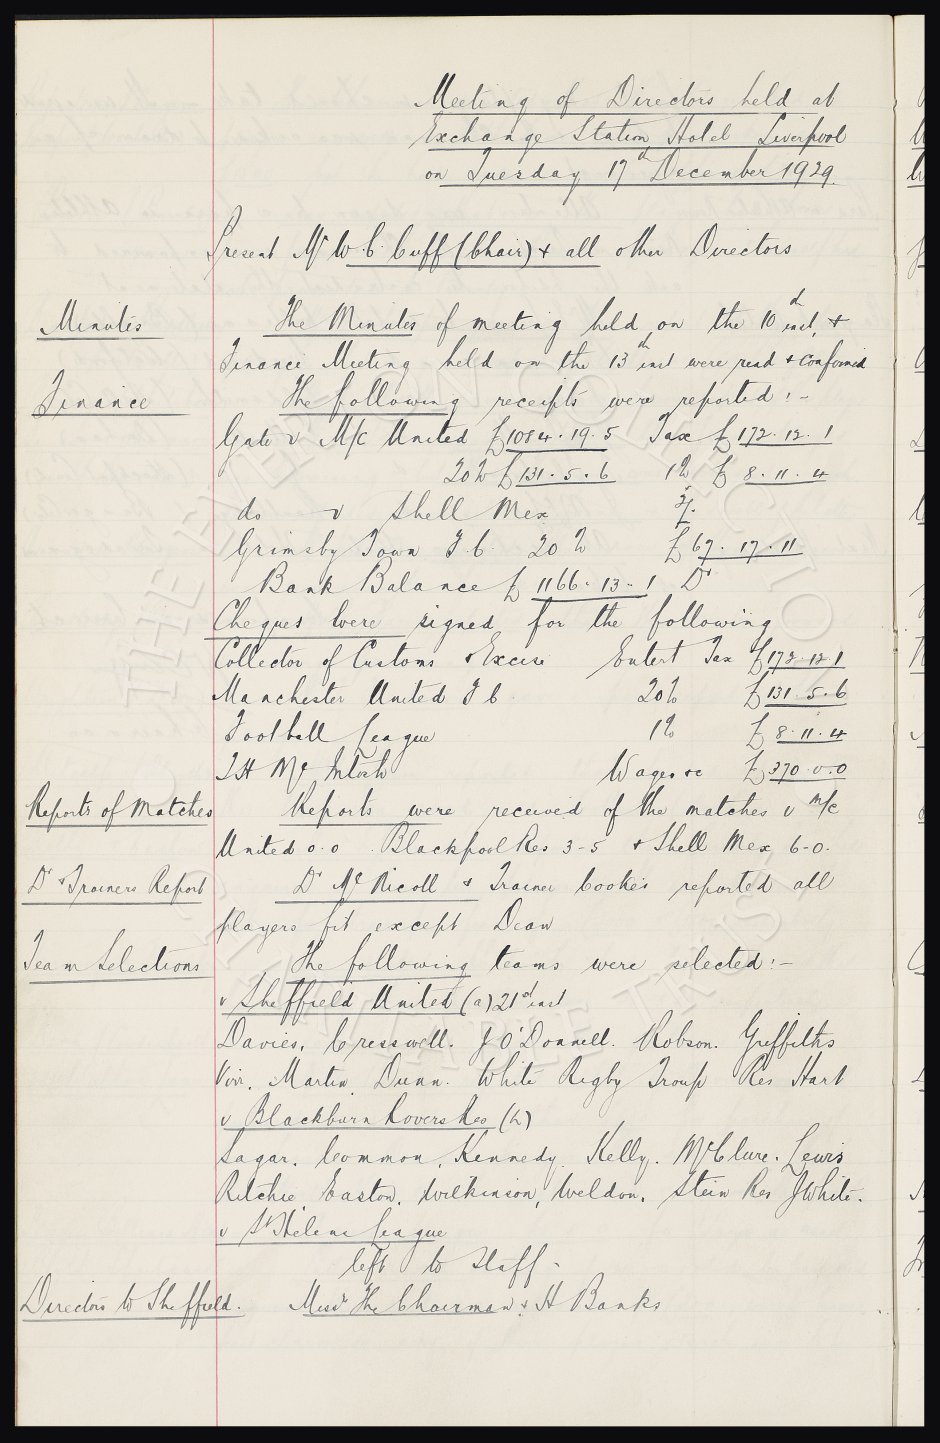 Meeting of Directors held at
Exchange Station Hotel Liverpool
on Tuesday 17th December 1929.
Present Mr W. C. Cuff (Chair) & all other Directors
Minutes
The Minutes of meeting held on the 10th inst, &
Finance Meeting held on the 13th inst were read & confirmed
Finance
The following receipts were reported :-
Gate v M/C United £1084.19.5 Tax £172.12.1
20% £131.5.6 1% £8.11.4
do v Shell Mex
Grimsby Town F.C. 20% £67.17.11
Bank Balance £1166.13.1 Dr
Cheques were signed for the following
Collector of Customs & Excise Entert Tax £172.12.1
Manchester United F C. 20% £131.5.6
Football League 1% £8.11.4
T H McIntosh Wages &c £370.0.0
Reports of Matches
Reports were received of the matches v M/C
United 0.0. Blackpool Res 3-5 & Shell Mex 6-0.
Dr & Trainers Report
Dr McNicoll & Trainer Cooke's reported all
players fit except Dean
Team Selections
The following teams were selected :-
v Sheffield United (a) 21st inst
Davies, Cresswell. J O'Donnell. Robson. Griffiths
Virr. Martin Dunn. White Rigby Troup Res Hart
v Blackburn Rovers Res (h)
Sagar. Common, Kennedy. Kelly. McClure. Lewis
Ritchie Easton, Wilkinson, Weldon, Stein Res J White.
v St Helens League
left to Staff.
Directors to Sheffield.
Messrs The Chairman & H Banks
THE EVERTON COLLECTION
CHARITABLE TRUST